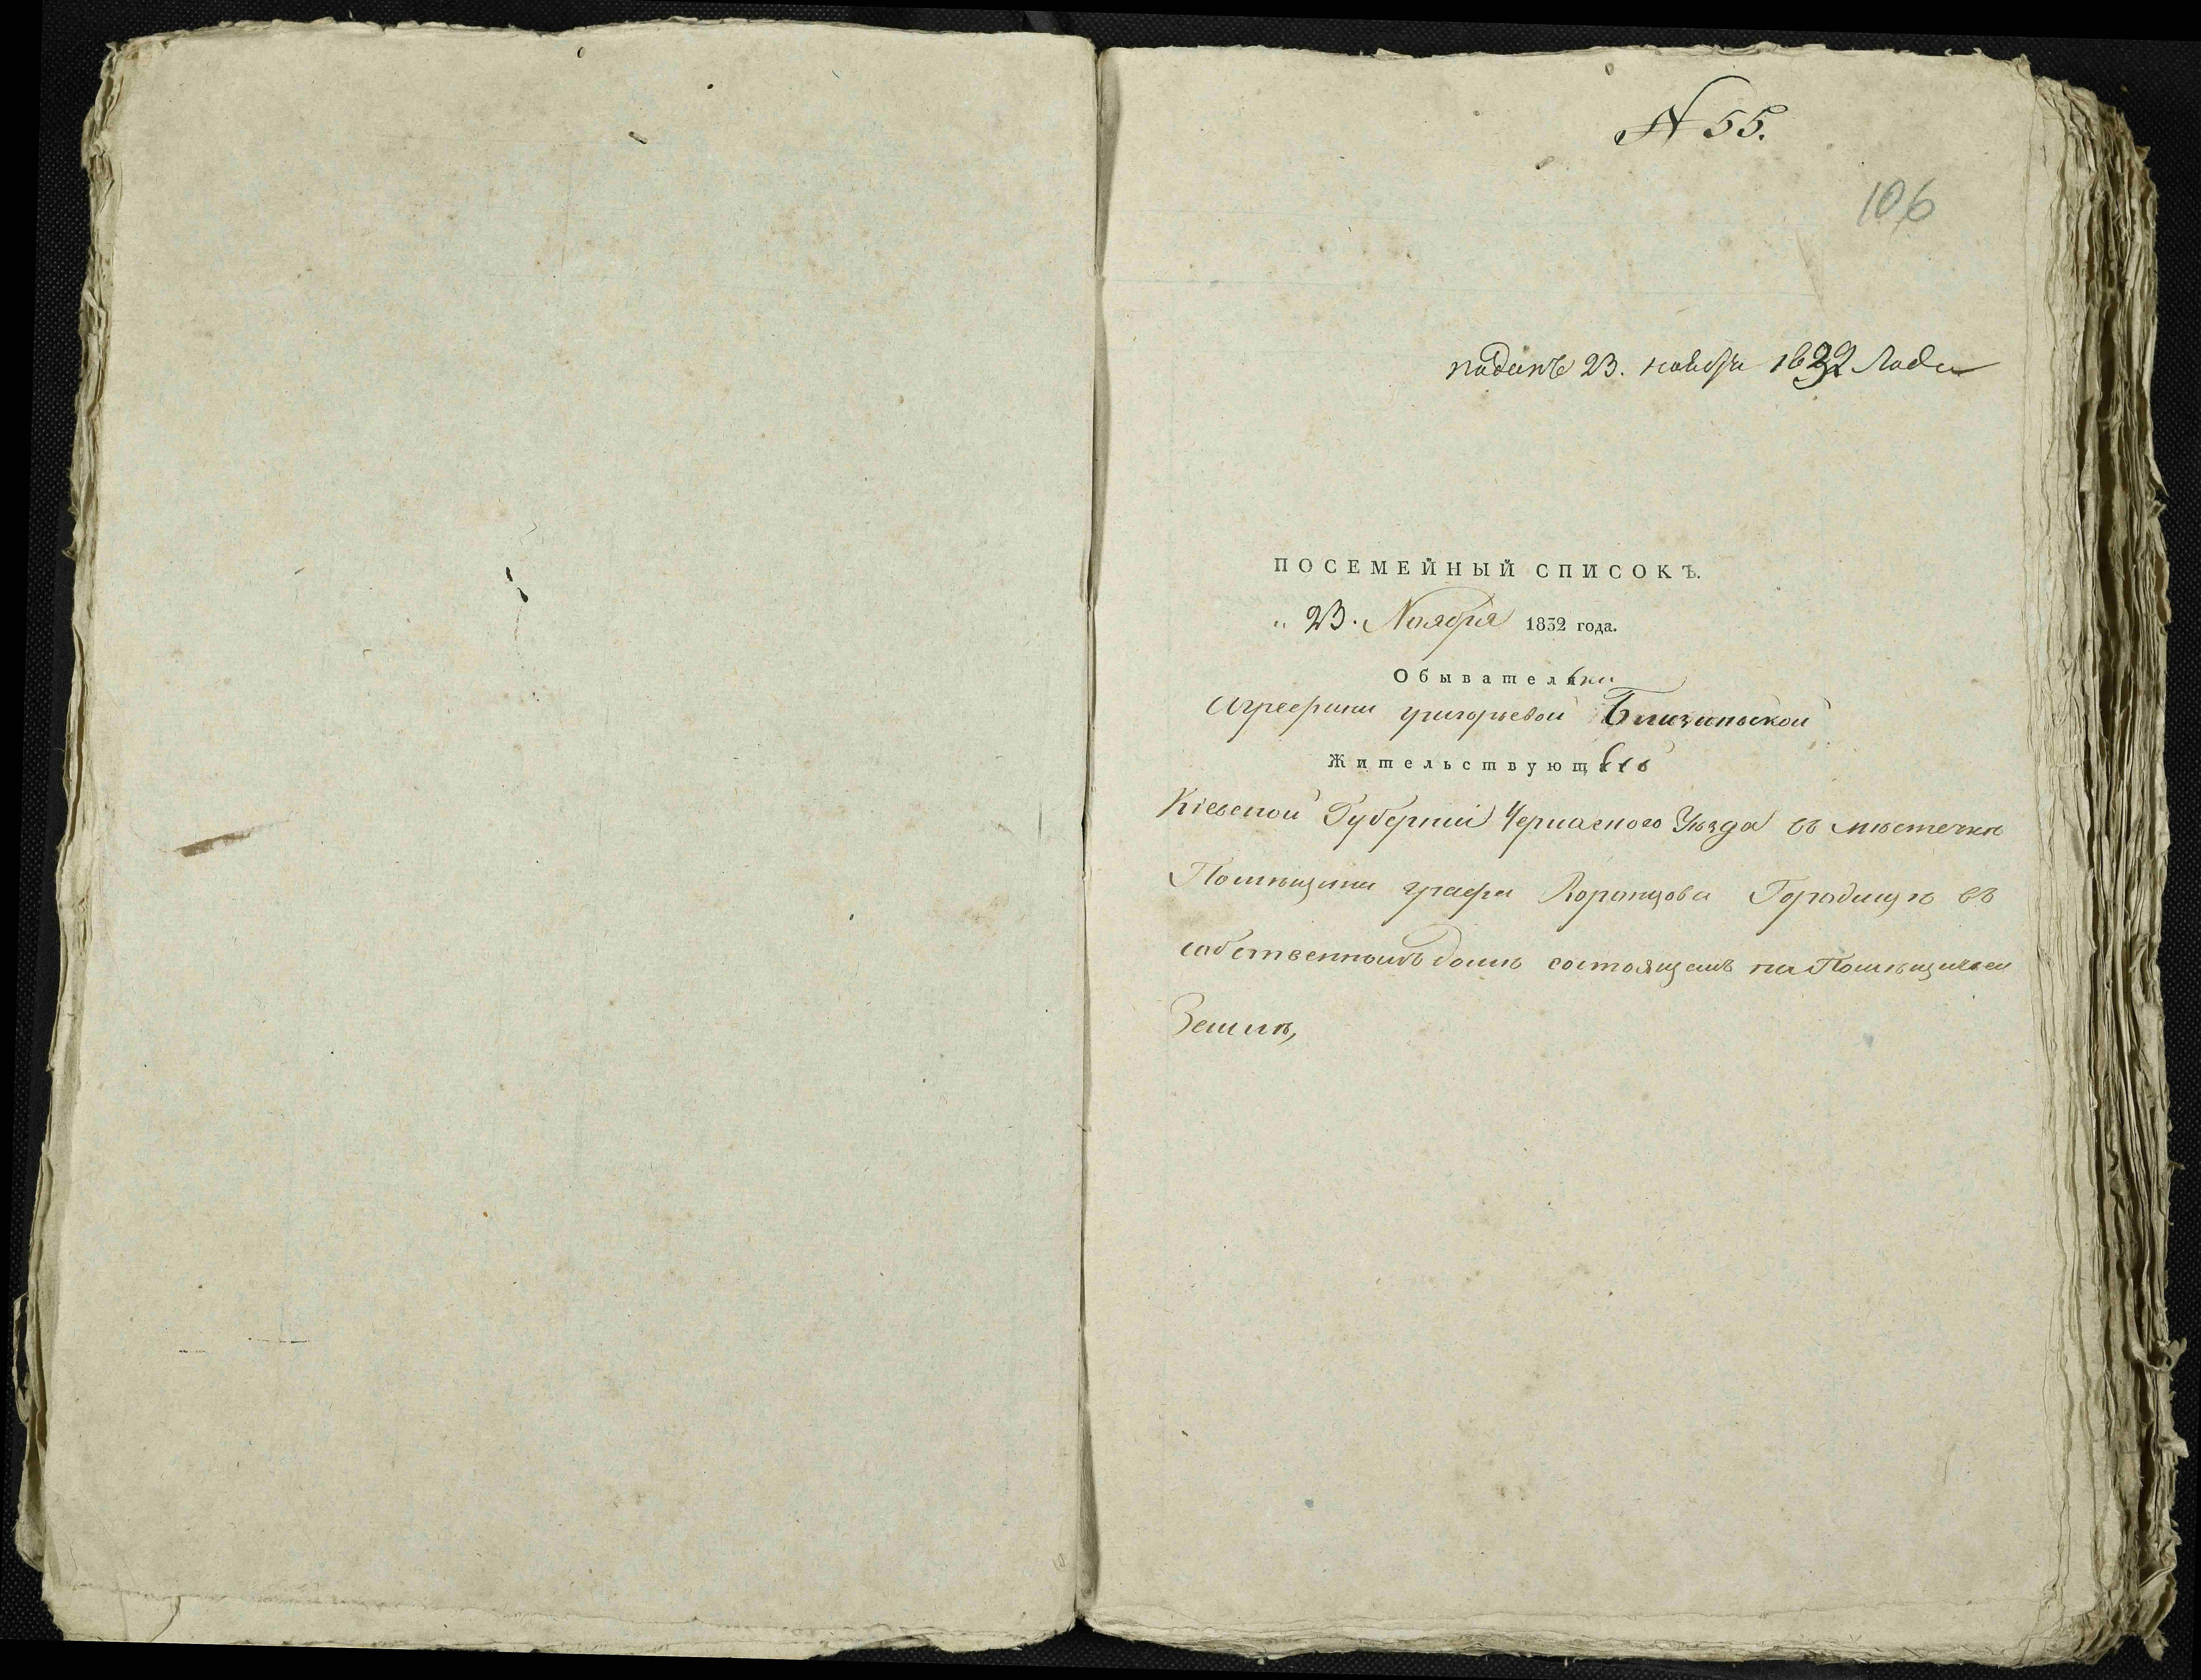 № 55.
106
поданъ 23. ноября 1832 Года
ПОСЕМЕЙНЫЙ СПИСОКЪ.
„ 23. Ноября 1832 года.
Обывательки
Агрефини григорьевой Близинской
Жительствующей
Кіевской Губерніи Черкаского Уѣзда въ мѣстечкѣ
Помѣщика графа Воронцова Городищѣ въ
собственномъ домѣ состоящемъ на Помѣщичьей
Землѣ,